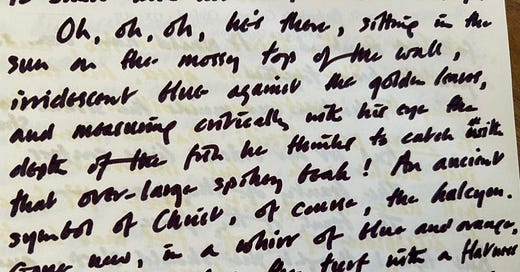 Oh, oh, oh, he's there, sitting in the
sun on the mossy top of the wall,
irridescent blue against the golden leaves,
and measuring critically with his eye the
depth of the fish he thinks to catch with
that over-large spikey beak! An ancient
symbol of Christ, of course, the halcyon.
Gone now, in a whirr of blue and orange,
the turf with a flatness